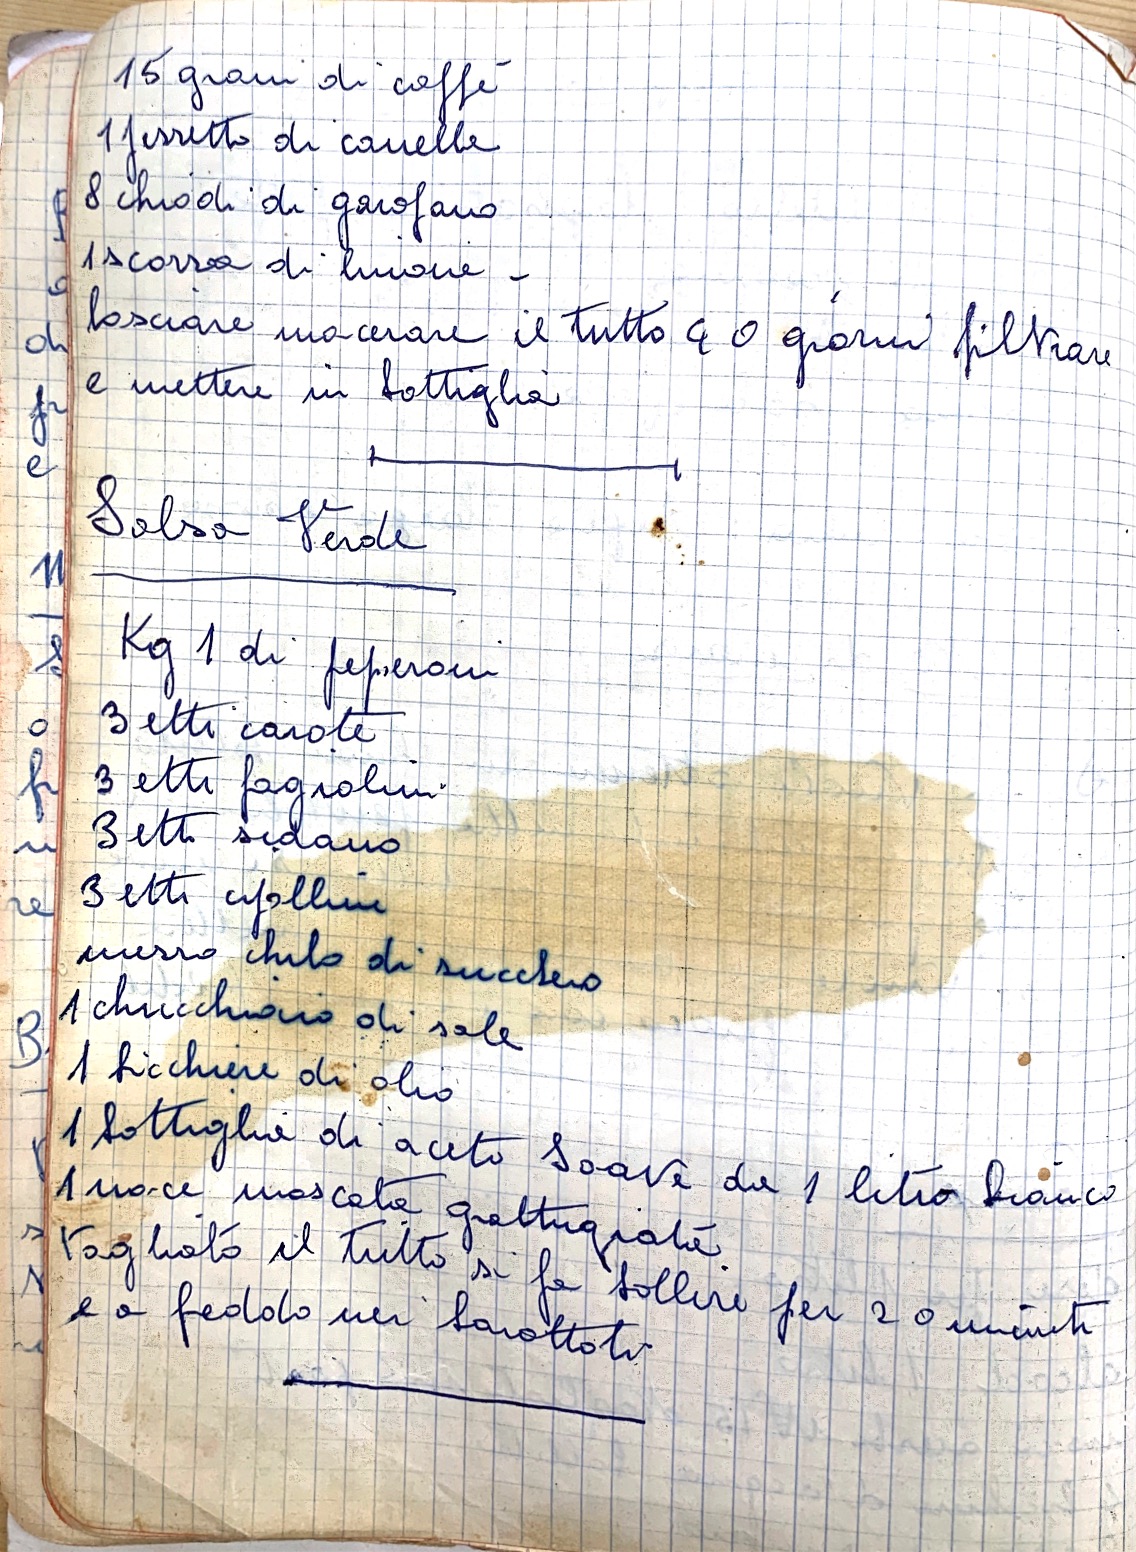 15 grani di caffè
1 pezzetto di canella
8 chiodi di garofano
1 scorza di limone -
lasciare macerare il tutto 40 giorni filtrare
e mettere in bottiglia
Salsa Verde
Kg 1 di peperoni
3 etti carote
3 etti fagiolini
3 etti sedano
3 etti cipolline
mezzo chilo di succhero
1 chucchiaio di sale
1 bicchiere di olio
1 bottiglia di aceto Soave da 1 litro bianco
1 noce moscata grattugiata
Tagliato il tutto si fa bollire per 20 minuti
e a freddo nei barattoli